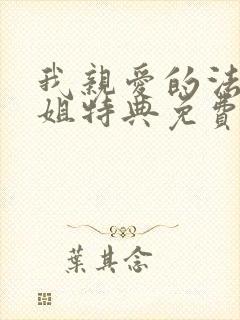 我親愛的法
姐特典免費
葉其念